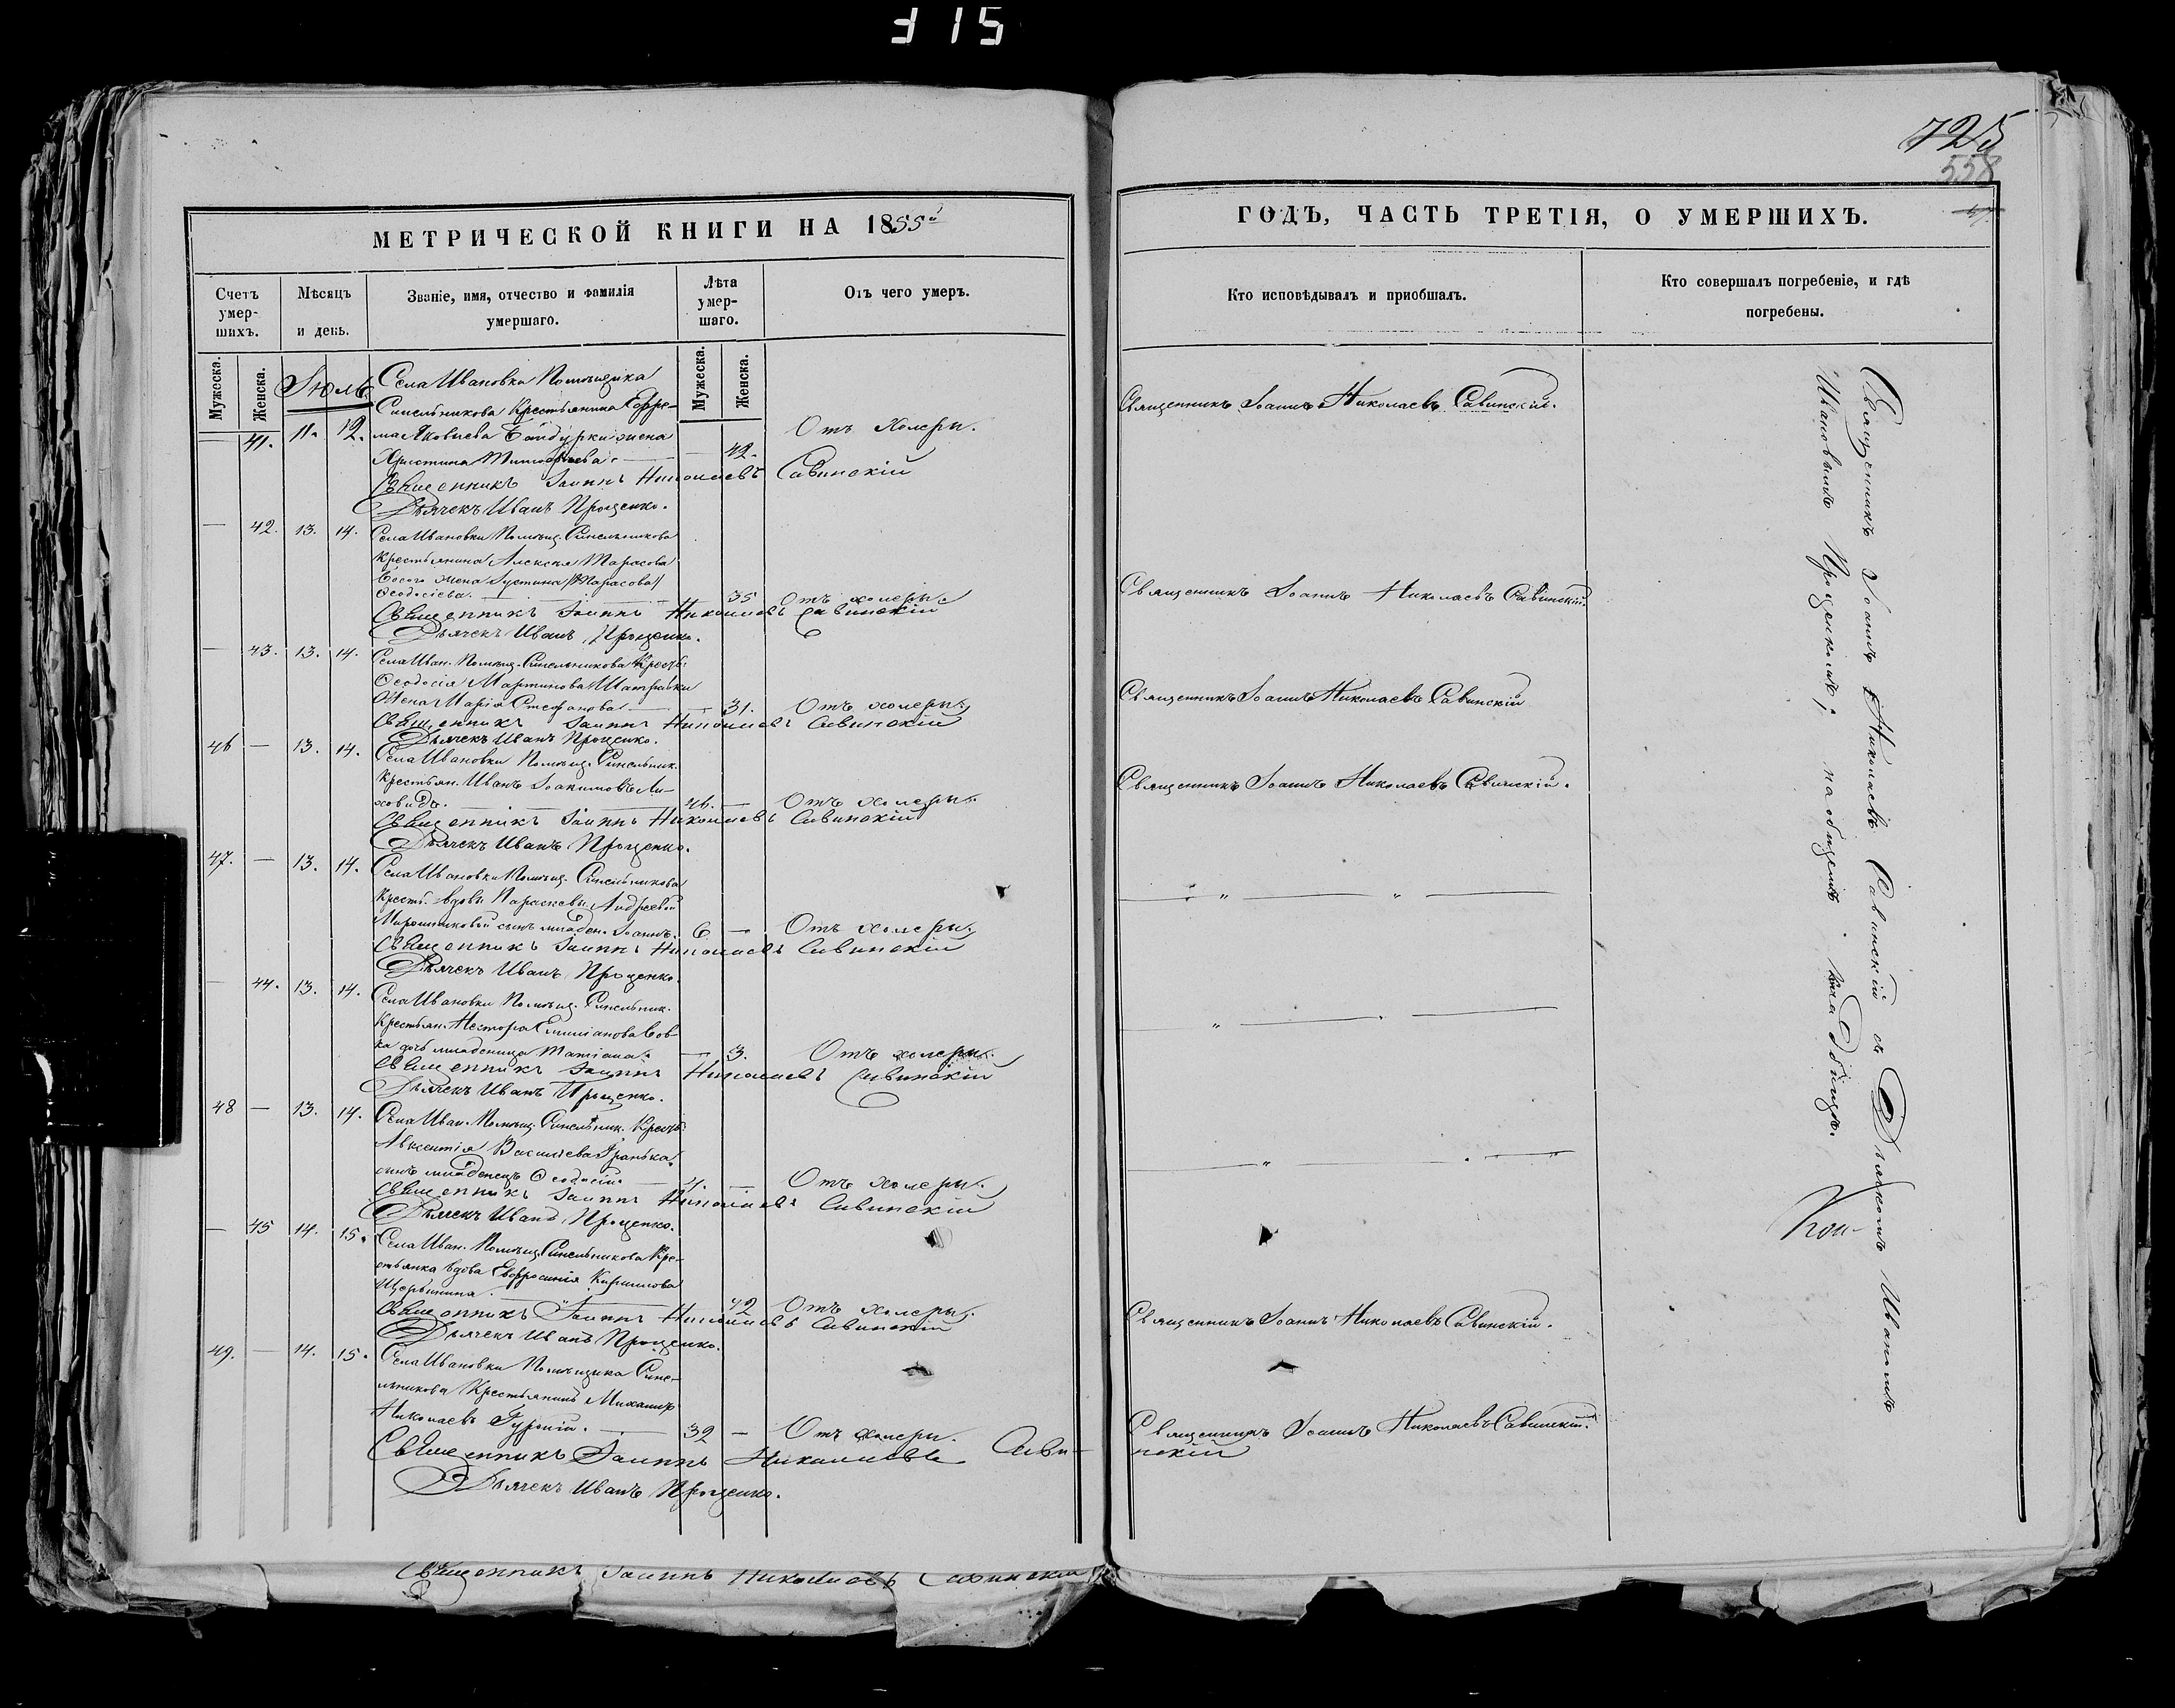 315
725
558
МЕТРИЧЕСКОЙ КНИГИ НА 1855й
Счетъ умер-шихъ.
Мѣсяцъ и день.
Званіе, имя, отчество и фамилія умершаго.
Лѣта умер-шаго.
Отъ чего умеръ.
Мужеска.
Женска.
Мужеска.
Женска.
Іюль.
Села Ивановки Помѣщика
Синельникова Крестьянина Ефре-
— 41. 11. 12. ма Яковлева Байдурки жена
Христина Тимофѣева. — 42. Отъ Холеры.
Священникъ Іоаннъ Николаевъ Савинскій
Дьячекъ Иванъ Проценко.
— 42. 13. 14. Села Ивановки Помѣщ. Синельникова
Крестьянина Алексѣя Тарасова
Босого жена Іустина /Тарасова/
Ѳеодосіева. 35 Отъ холеры.
Священникъ Іоаннъ Николаевъ Савинскій
Дьячекъ Иванъ Проценко.
— 43. 13. 14. Села Иван. Помѣщ. Синельникова Крест.
Ѳеодосія Мартинова
Жена Марія Стефанова — 31. Отъ холеры.
Священникъ Іоаннъ Николаевъ Савинскій
Дьячекъ Иванъ Проценко.
46 — 13. 14. Села Ивановки Помѣщ. Синельник.
Крестьян. Иванъ Іоакимовъ Ли-
ховидъ. 46. — Отъ холеры.
Священникъ Іоаннъ Николаевъ Савинскій
Дьячекъ Иванъ Проценко.
47. — 13. 14. Села Ивановки Помѣщ. Синельникова
Крест. вдовы Параскевы Андреевой
Мирошниковой сынъ младен. Іоаннъ. 6 — Отъ холеры.
Священникъ Іоаннъ Николаевъ Савинскій
Дьячекъ Иванъ Проценко.
— 44. 13. 14. Села Ивановки Помѣщ. Синельник.
Крестьян. Нестора Емиліанова Вов-
ка дочь младеница Татіана. — 3. Отъ холеры.
Священникъ Іоаннъ Николаевъ Савинскій
Дьячекъ Иванъ Проценко.
48 — 13. 14. Села Иван. Помѣщ. Синельник. Крест.
Авксентія Васильева
сынъ младенецъ Ѳеодосій. — Отъ холеры.
Священникъ Іоаннъ Николаевъ Савинскій
Дьячекъ Иванъ Проценко.
— 45 14. 15. Села Иван. Помѣщ. Синельникова Кре-
стьянка вдова Евфросинія Кириллова
Щербинина. 42 Отъ холеры.
Священникъ Іоаннъ Николаевъ Савинскій
Дьячекъ Иванъ Проценко.
49. — 14. 15. Села Ивановки Помѣщика Сине-
льникова Крестьянинъ Михаилъ
Николаевъ Гурскій. — 32 — Отъ холеры.
Священникъ Іоаннъ Николаевъ Сави-нскій
Дьячекъ Иванъ Проценко.
Священникъ Іоаннъ Николаевъ Савинскій
ГОДЪ, ЧАСТЬ ТРЕТІЯ, О УМЕРШИХЪ.
Кто исповѣдывалъ и пріобшалъ.
Кто совершалъ погребеніе, и гдѣ погребены.
Священникъ Іоаннъ Николаевъ Савинскій.
Священникъ Іоаннъ Николаевъ Савинскій.
Священникъ Іоаннъ Николаевъ Савинскій
Священникъ Іоаннъ Николаевъ Савинскій.
— „ — „ —
„ — „ —
— „ — „
Священникъ Іоаннъ Николаевъ Савинскій.
Священникъ Іоаннъ Николаевъ Савинскій.
Священникъ Іоаннъ Николаевъ Савинскій съ Дьячкомъ Иваномъ
Ивановымъ Проценкомъ; на общемъ кладбищѣ.